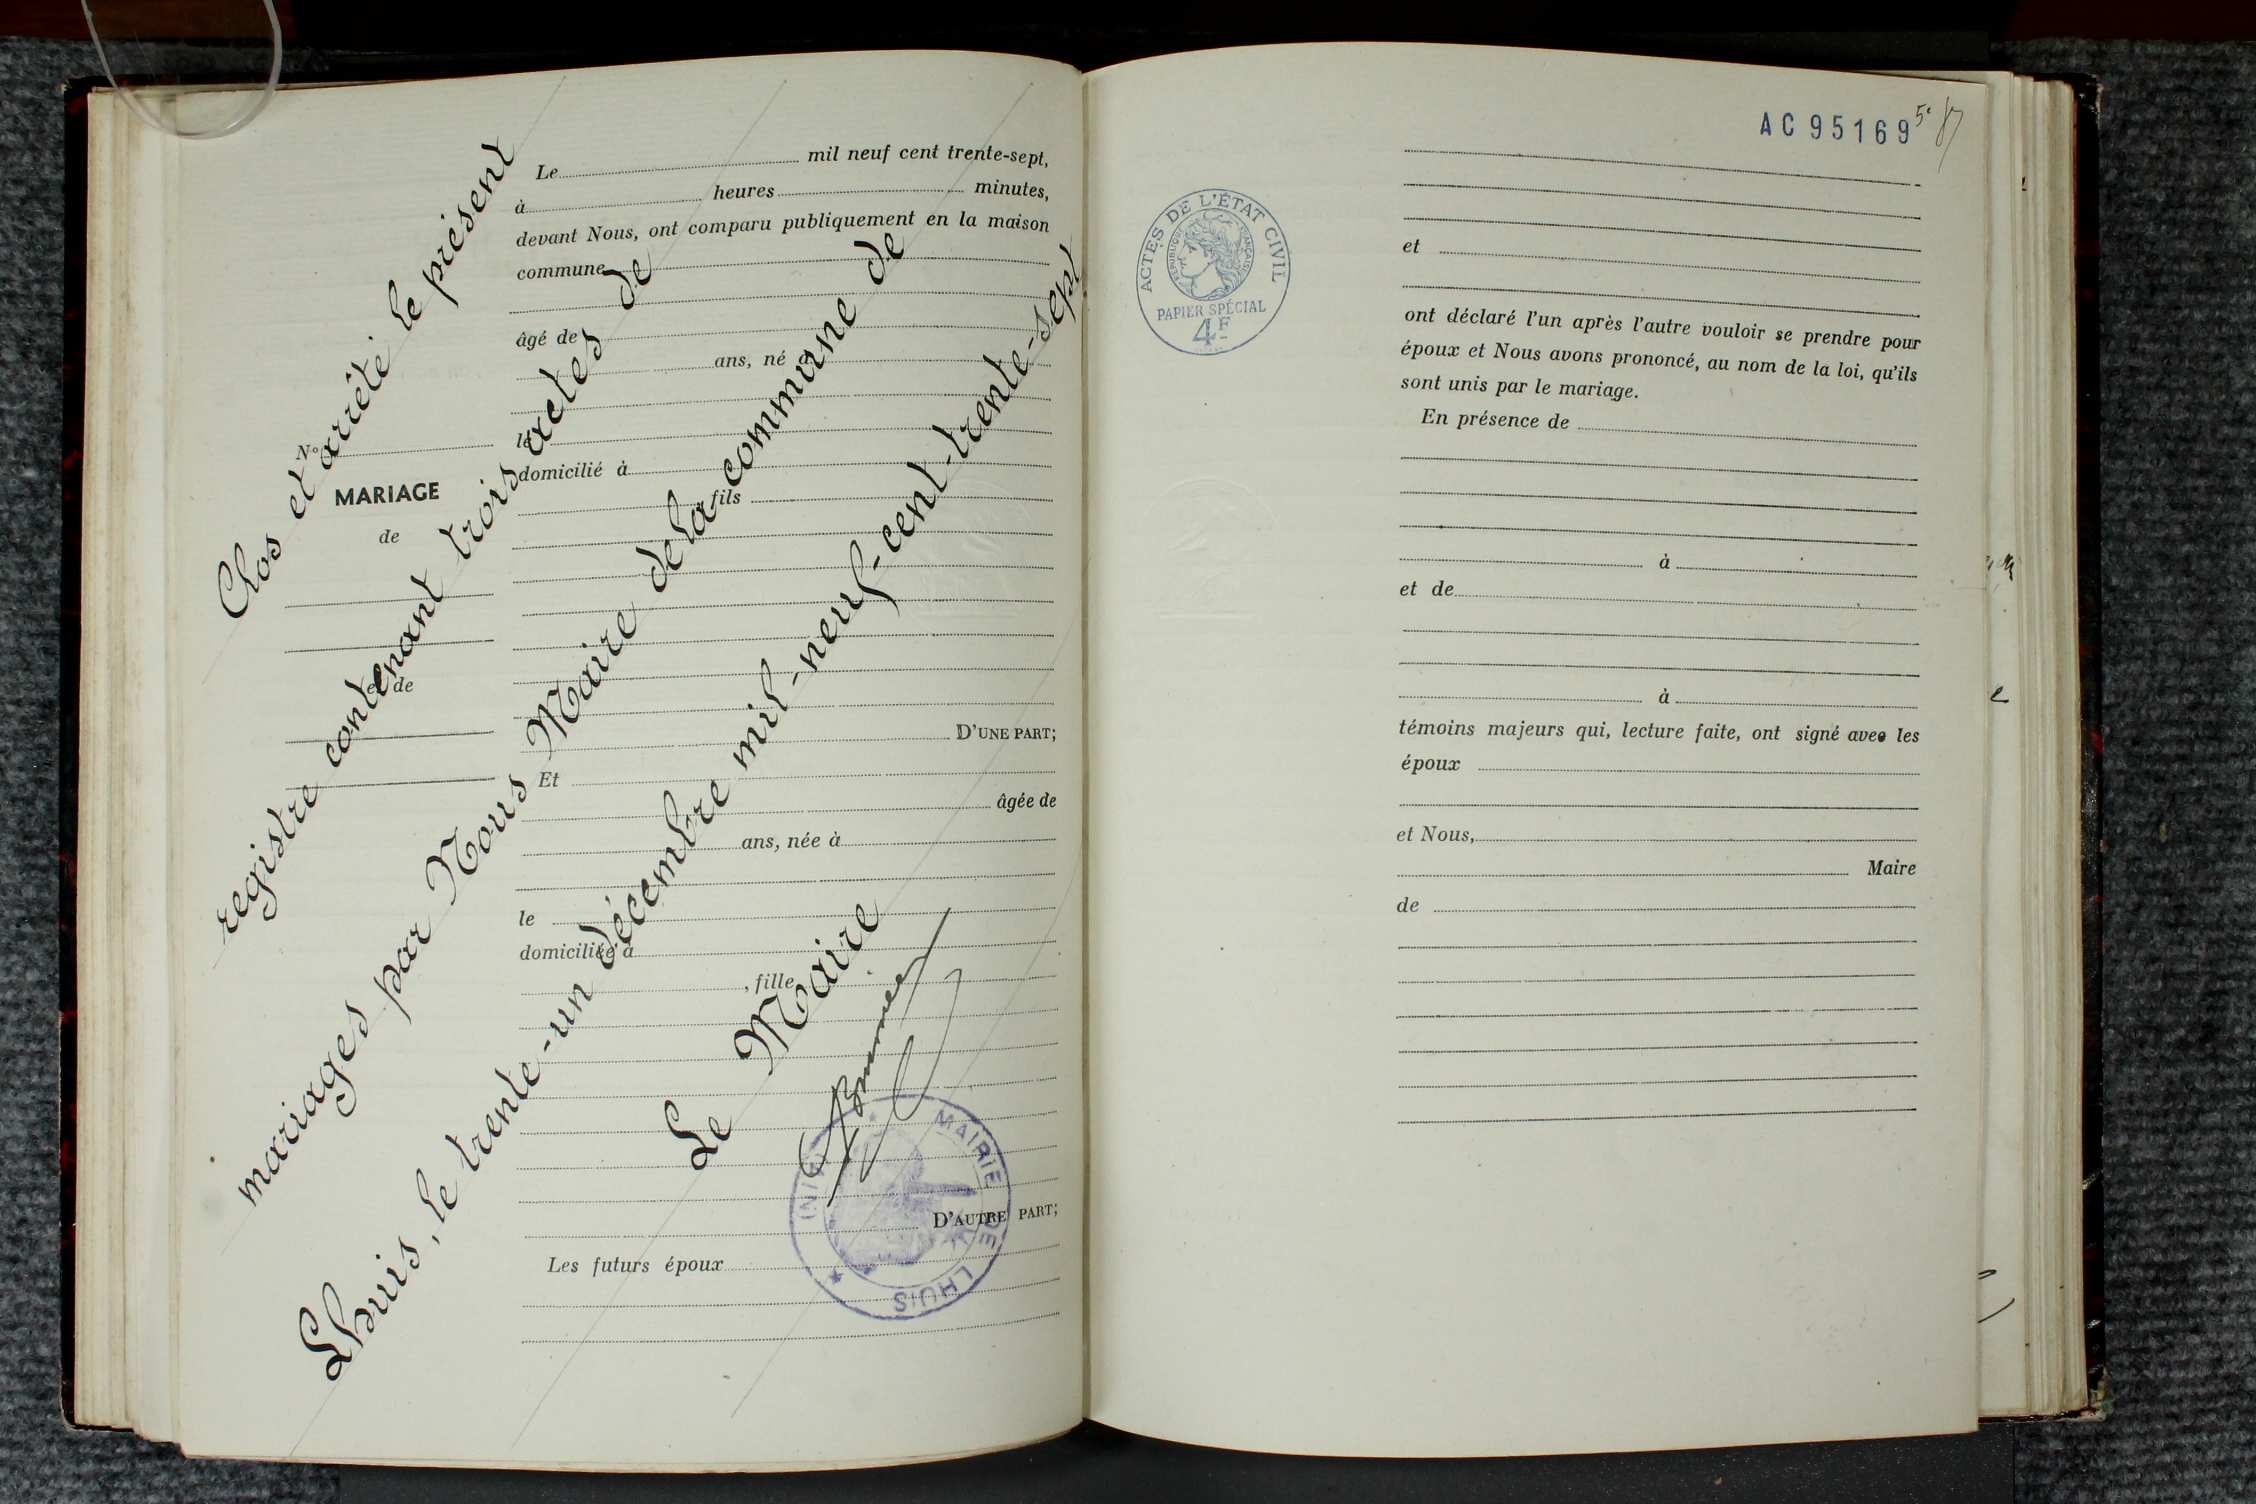 Le mil neuf cent trente-sept,
à heures minutes,
devant Nous, ont comparu publiquement en la maison
commune
âgé de
ans, né à
le
domicilié à
fils
D'UNE PART;
Et
âgée de
ans, née à
le
domiciliée à
, fille
D'AUTRE PART;
Les futurs époux
N°
MARIAGE
de
et de
Clos et arrêté le présent
registre contenant trois actes de
mariages par Nous Maire de la commune de
Lhuis, le trente-un décembre mil-neuf-cent-trente-sept
Le Maire
MAIRIE DE LHUIS
(AIN)
AC 95169
ACTES DE L'ÉTAT CIVIL
RÉPUBLIQUE FRANÇAISE
PAPIER SPÉCIAL
4F
et
ont déclaré l'un après l'autre vouloir se prendre pour
époux et Nous avons prononcé, au nom de la loi, qu'ils
sont unis par le mariage.
En présence de
à
et de
à
témoins majeurs qui, lecture faite, ont signé avec les
époux
et Nous,
Maire
de